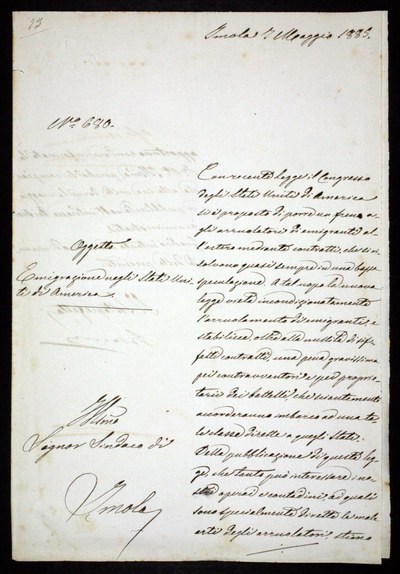 23
Imola 7 Maggio 1885.
No. 680.
Oggetto
Emigrazione negli Stati Uni-
ti di America
Illmo
Signor Sindaco di
Imola
Con recente legge il Congresso
degli Stati Uniti di America
si è proposto di porre un freno a-
gli arruolatori di emigranti al-
l'estero mediante contratti, che si ri-
solvono quasi sempre in una bassa
speculazione. A tal uopo la nuova
legge vieta incondizionatamente
l'arruolamento di emigranti, e
stabilisce, oltre alla nullità di sif-
fatti contratti, una pena gravissima
pei contravventori e pei proprie-
tari dei battelli che scientemente
accorderanno imbarco ad una ta-
le classe dirette a quegli Stati.
Della pubblicazione di questa leg-
ge, che tanto può interessare i no-
stri operai e contadini, ai quali
sono specialmente dirette le male
arti degli arruolatori, stimo